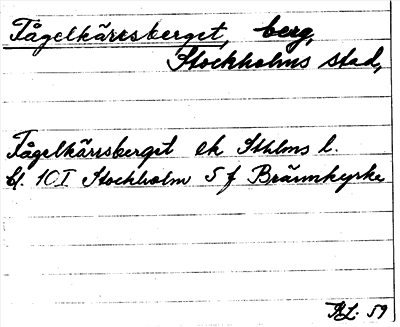 Fågelkärrsberget, berg,
Stockholms stad,
Fågelkärrsberget ek Sthlms l.
bl. 10I Stockholm 5 f Brännkyrka
59